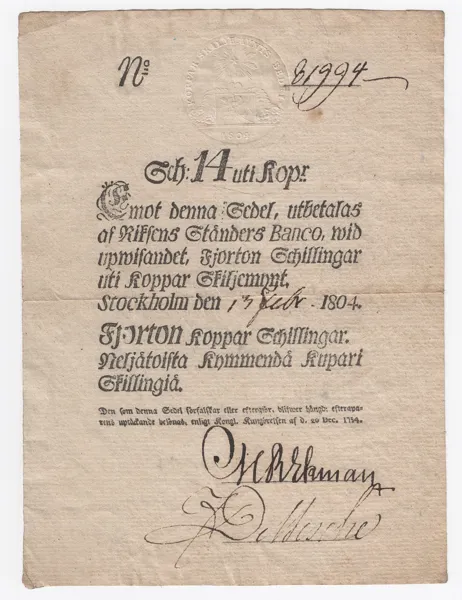 No 81994
Sch: 14 uti Kopr
Emot denna Sedel, utbetalas
af Riksens Ständers Banco, wid
upwisandet, Fjorton Schillingar
uti Koppar Skiljemynt,
Stockholm den 13 Febr. 1804.
Fjorton Koppar Schillingar.
Neljätoista Kymmendä Kupari
Skillingiä.
Den som denna Sedel förfalskar eller eftergör, blifwer hängd; efterapa-
rens uptäckande belönas, enligt Kongl. Kungörelsen af d.
Ekman